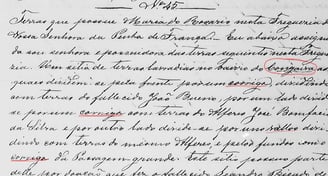 Nº 45
Terras que possue Maria do Rosario nesta Freguezia
Nossa Senhora da Penha de França. Eu abaixo
do sou senhora e possuidora das terras seguintes nesta Fregue
zia. Um sitio de terras lavradias no bairro do
quaes dividem-se pela frente por um corrigo, dividindo
com terras do fallecido João Bueno, por um lado divide
se por um corrigo com terras do Alferes José Bonifacio
da Silva e por outro lado divide-se por um vallos devi
dindo com terras do mesmo Alferes, e pelos fundos com o
corrigo da Passagem grande. Este sitio possuo parte